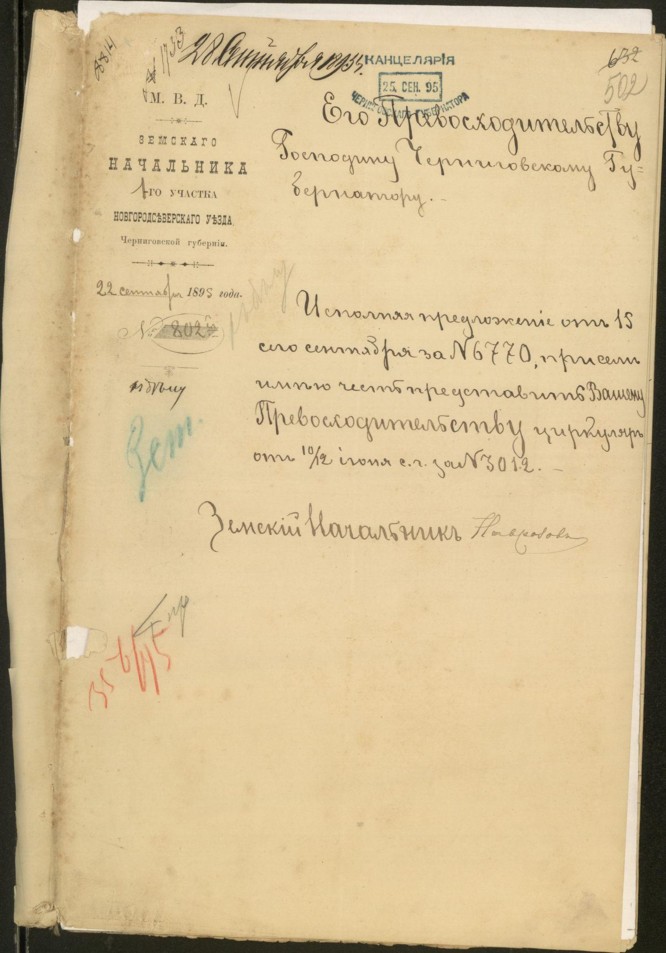 8814
28 Сентября
КАНЦЕЛЯРІЯ
25. СЕН. 95
ЧЕРНИГОВСКАГО ГУБЕРНАТОРА
632
502
М. В. Д.
ЗЕМСКАГО
НАЧАЛЬНИКА
1-го УЧАСТКА
НОВГОРОДСѢВЕРСКАГО УѢЗДА
Черниговской губерніи.
22 сентября 1895 года.
№ 802
къ дѣлу
Зем.
Его Превосходительству
Господину Черниговскому Гу=
бернатору.
Исполняя предложеніе отъ 15
сего сентября за № 6770, при семъ
имѣю честь представить Вашему
Превосходительству циркуляръ
отъ 10/12 іюня с. г. за № 3012.
Земскій Начальникъ